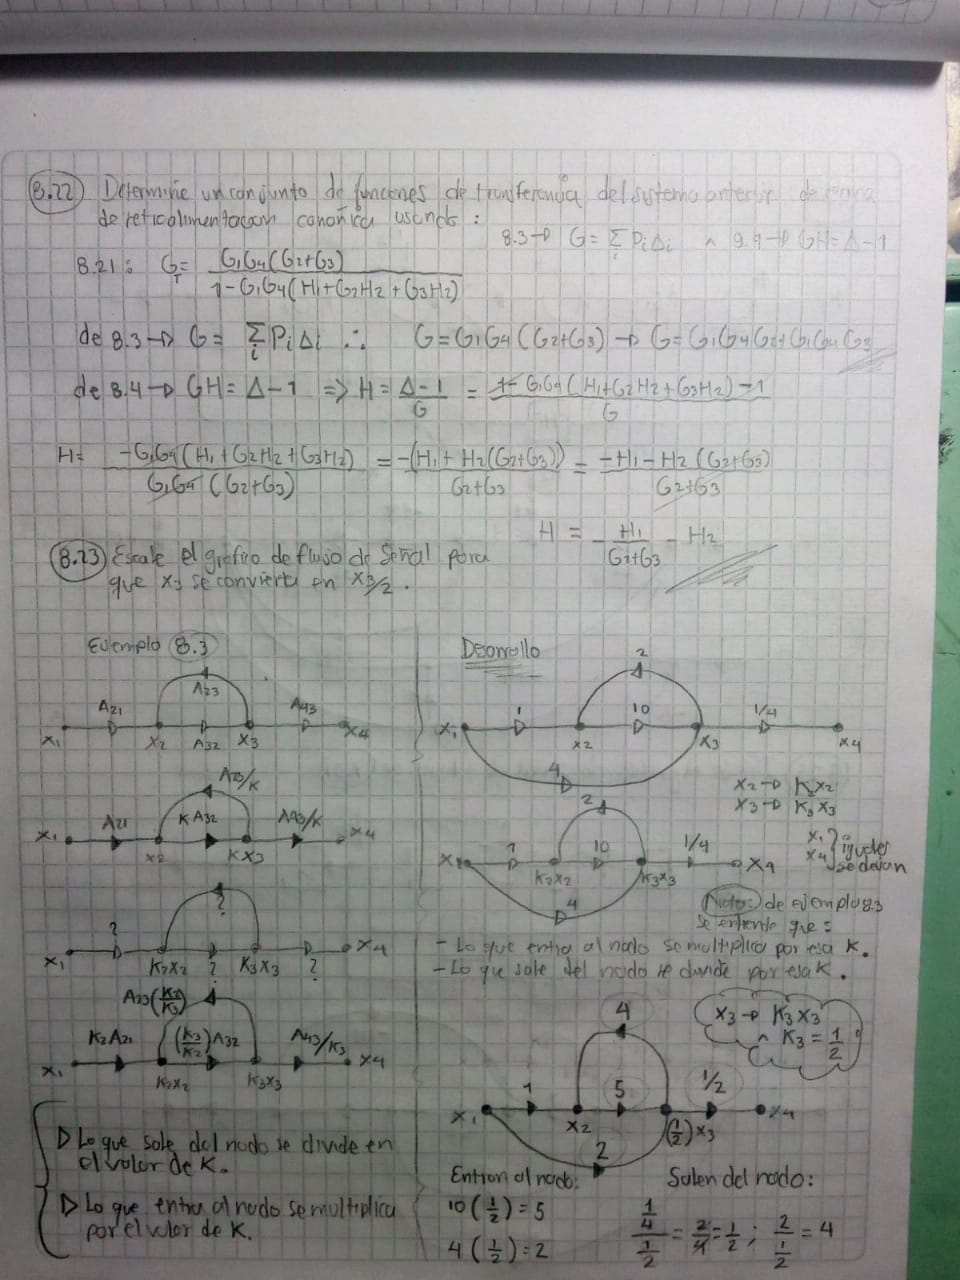 8.22 Determine un conjunto de funciones de transferencia del sistema anterior de forma
de retroalimentacion canonica usando:
8.3→ G= Σi PiΔi ∧ 8.4→ GH=Δ-1
8.21: GT= G1G4(G2+G3) / 1-G1G4(H1+G2H2+G3H2)
de 8.3→ G= Σi PiΔi ∴ G=G1G4(G2+G3) → G=G1G4G2+G1G4G3
de 8.4→ GH=Δ-1 => H= Δ-1 / G = 1-G1G4(H1+G2H2+G3H2)-1 / G
H= -G1G4(H1+G2H2+G3H2) / G1G4(G2+G3) = -(H1+H2(G2+G3)) / G2+G3 = -H1-H2(G2+G3) / G2+G3
H = - H1 / G2+G3 - H2
8.23 Escale el grafico de flujo de señal para
que x3 se convierta en x3/2.
Ejemplo 8.3
A23
A21 A43
x1 x2 A32 x3 x4
A23/K
A21 K A32 A43/K
x1 x2 Kx3 x4
?
? ? ?
x1 K2x2 K3x3 x4
A23(K2/K3)
K2A21 (K3/K2)A32 A43/K3
x1 K2x2 K3x3 x4
▷ Lo que sale del nodo se divide en
el valor de K.
▷ Lo que entra al nodo se multiplica
por el valor de K.
Desarrollo
2
1 10 1/4
x1 x2 x3 x4
4
x2→ K2x2
x3→ K3x3
x1
x4 } iguales
se dejan
2
1 10 1/4
x1 K2x2 K3x3 x4
4
Nota: de ejemplo 8.3
se entiende que:
- Lo que entra al nodo se multiplica por esa K.
- Lo que sale del nodo se divide por esa K.
x3→ K3x3
∧ K3 = 1/2
4
1 5 1/2
x1 x2 (1/2)x3 x4
2
Entran al nodo:
10(1/2)=5
4(1/2)=2
Salen del nodo:
1/4 / 1/2 = 2/4 = 1/2 ; 2 / 1/2 = 4